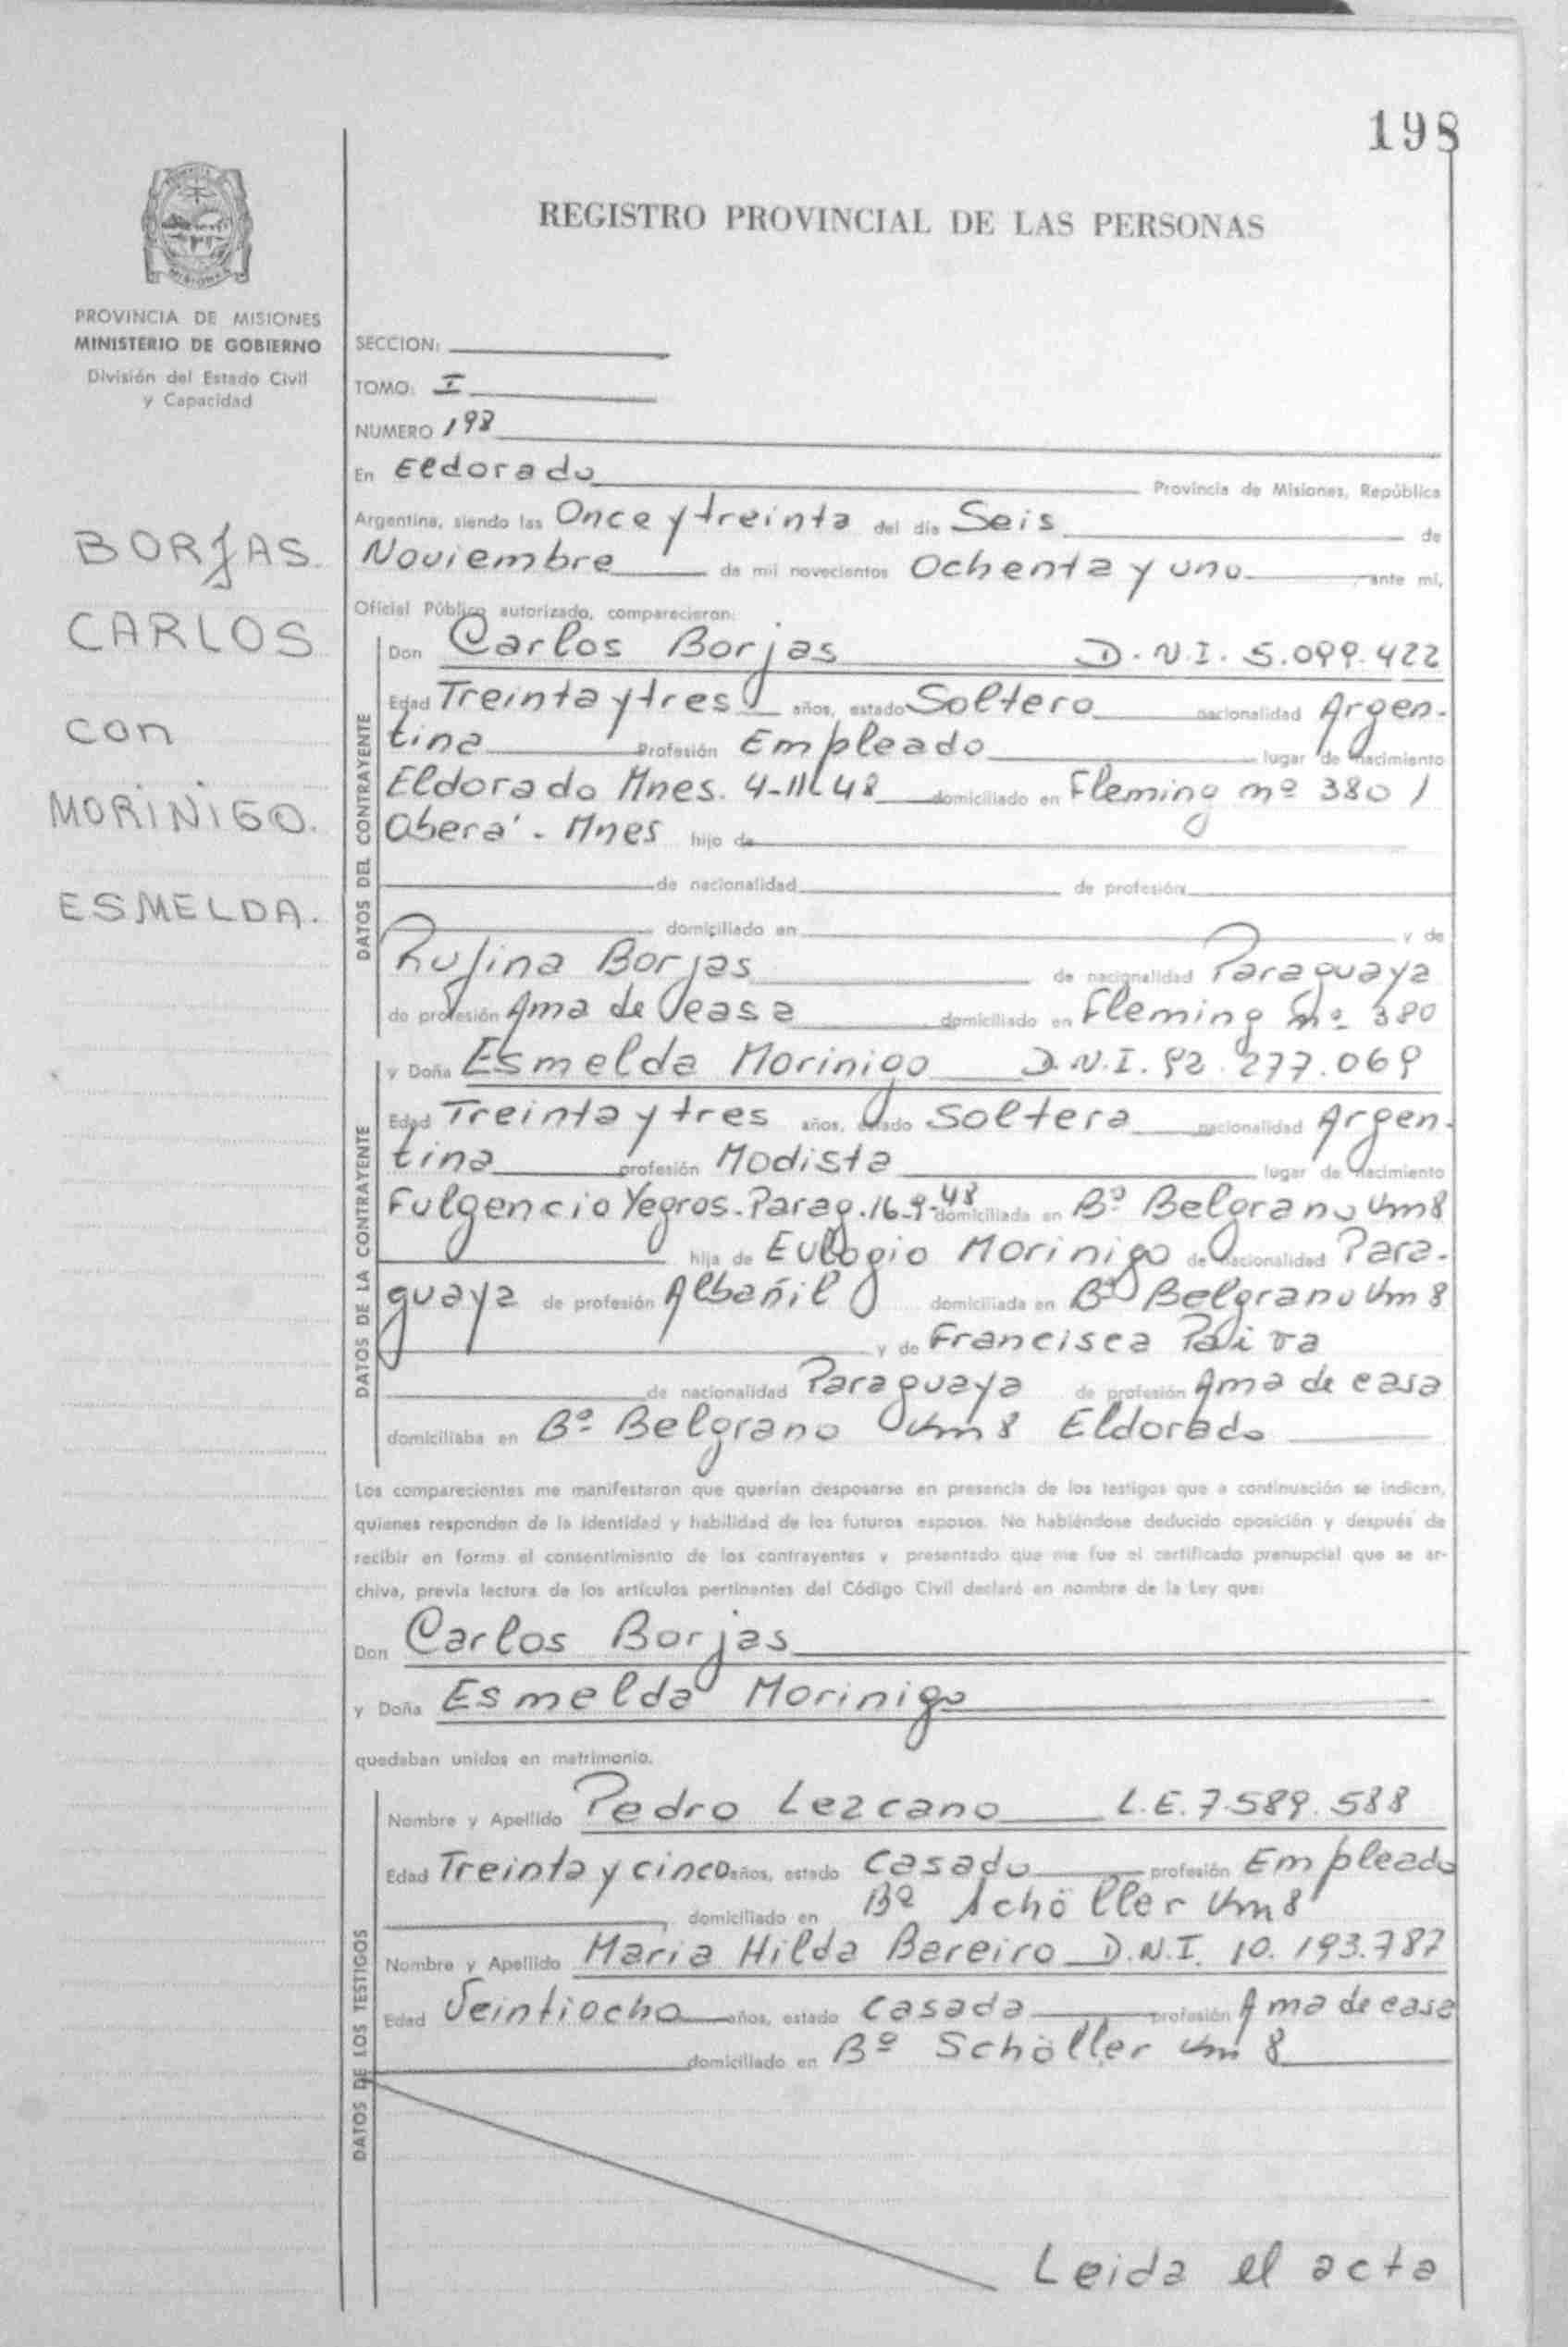 198
REGISTRO PROVINCIAL DE LAS PERSONAS
PROVINCIA DE MISIONES
MINISTERIO DE GOBIERNO
División del Estado Civil
y Capacidad
BORJAS
CARLOS
con
MORINIGO.
ESMELDA.
SECCION:
TOMO: I
NUMERO 198
En Eldorado Provincia de Misiones, República
Argentina, siendo las Once y treinta del día Seis de
Noviembre de mil novecientos Ochenta y uno ante mi,
Oficial Público autorizado, comparecieron:
DATOS DEL CONTRAYENTE
Don Carlos Borjas D.N.I. 5.099.422
Edad Treinta y tres años, estado Soltero nacionalidad Argen-
tina Profesión Empleado lugar de nacimiento
Eldorado Mnes. 4-11-48 domiciliado en Fleming nº 380 /
Oberá - Mnes hijo de
de nacionalidad de profesión
domiciliado en y de
Rufina Borjas de nacionalidad Paraguaya
de profesión Ama de casa domiciliado en Fleming nº 380
DATOS DE LA CONTRAYENTE
y Doña Esmelda Morinigo D.N.I. 92.277.069
Edad Treinta y tres años, estado Soltera nacionalidad Argen-
tina profesión Modista lugar de nacimiento
Fulgencio Yegros. Parag. 16-9-48 domiciliada en Bº Belgrano Km 8
hija de Eulogio Morinigo de nacionalidad Para-
guaya de profesión Albañil domiciliada en Bº Belgrano Km 8
y de Francisca Paiva
de nacionalidad Paraguaya de profesión Ama de casa
domiciliaba en Bº Belgrano Km 8 Eldorado
Los comparecientes me manifestaron que querían desposarse en presencia de los testigos que a continuación se indican,
quienes responden de la identidad y habilidad de los futuros esposos. No habiéndose deducido oposición y después de
recibir en forma el consentimiento de los contrayentes y presentado que me fue el certificado prenupcial que se ar-
chiva, previa lectura de los artículos pertinentes del Código Civil declaró en nombre de la Ley que:
Don Carlos Borjas
y Doña Esmelda Morinigo
quedaban unidos en matrimonio.
DATOS DE LOS TESTIGOS
Nombre y Apellido Pedro Lezcano L.E. 7.589.588
Edad Treinta y cinco años, estado Casado profesión Empleado
domiciliado en Bº Schöller Km 8
Nombre y Apellido Maria Hilda Bareiro D.N.I. 10.193.787
Edad Veintiocho años, estado Casada profesión Ama de casa
domiciliado en Bº Schöller Km 8
Leida el acta